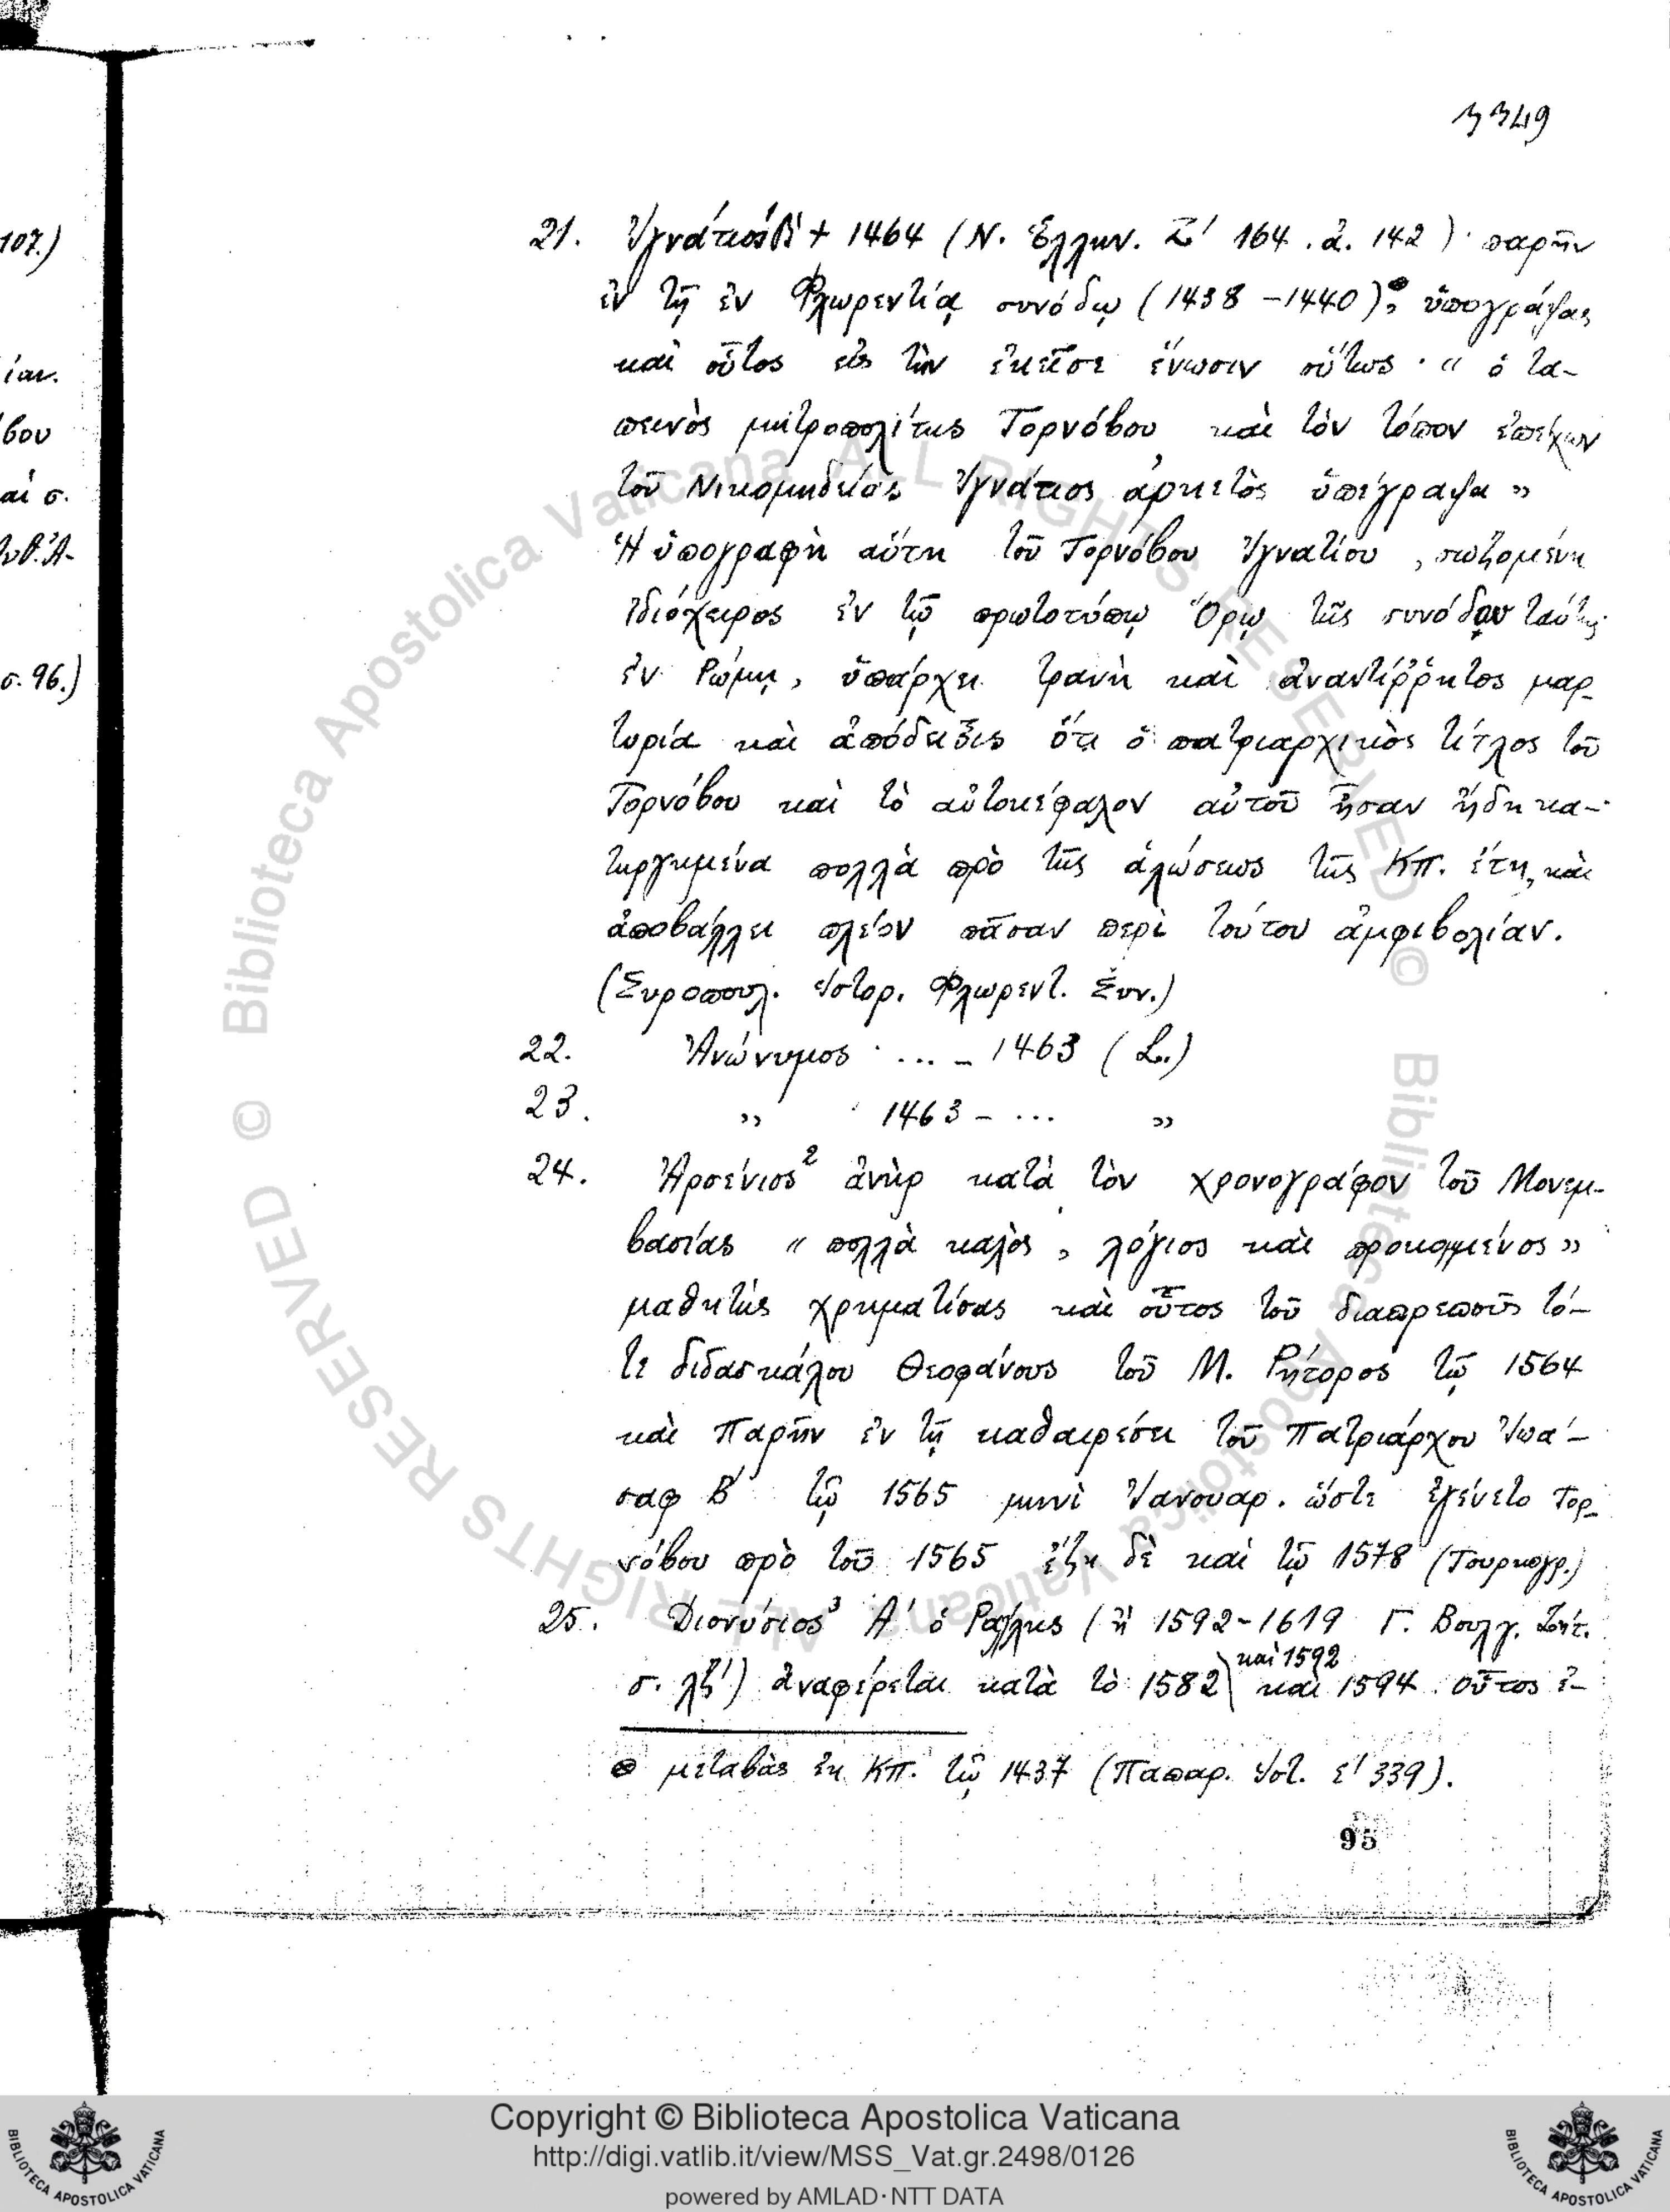 3349
107.)
ίαν.
βου
αἱ σ.
σ. 96.)
21. Ἰγνάτιος Β΄ + 1464 (Ν. Ἑλλην. Ζ΄ 164 . ἀ. 142) · παρῆν
ἐν τῇ ἐν Φλωρεντίᾳ συνόδῳ (1438 – 1440), ὑπογράψας
καὶ οὗτος εἰς τὴν ἐκεῖσε ἕνωσιν οὕτως · « ὁ τα-
πεινὸς μητροπολίτης Τορνόβου καὶ τὸν τόπον ἐπέχων
τοῦ Νικομηδείας Ἰγνάτιος ἀρκετὸς ὑπέγραψα »
Ἡ ὑπογραφὴ αὕτη τοῦ Τορνόβου Ἰγνατίου, σωζομένη
ἰδιόχειρος ἐν τῷ πρωτοτύπῳ Ὅρῳ τῆς συνόδου ταύτης
ἐν Ῥώμῃ, ὑπάρχει τρανὴ καὶ ἀναντίῤῥητος μαρ-
τυρία καὶ ἀπόδειξις ὅτι ὁ πατριαρχικὸς τίτλος τοῦ
Τορνόβου καὶ τὸ αὐτοκέφαλον αὐτοῦ ἦσαν ἤδη κα-
τηργημένα πολλὰ πρὸ τῆς ἁλώσεως τῆς Κπ. ἔτη, καὶ
ἀποβάλλει πλέον πᾶσαν περὶ τούτου ἀμφιβολίαν.
(Συροπουλ. Ἱστορ. Φλωρεντ. Συν.)
22. Ἀνώνυμος · ... – 1463 (L.)
23. „ 1463 – ... „
24. Ἀρσένιος² ἀνὴρ κατὰ τὸν χρονογράφον τοῦ Μονεμ-
βασίας « πολλὰ καλὸς, λόγιος καὶ προκομμένος »
μαθητὴς χρηματίσας καὶ οὗτος τοῦ διαπρεποῦς τό-
τε διδασκάλου Θεοφάνους τοῦ Μ. Ῥήτορος τῷ 1564
καὶ παρῆν ἐν τῇ καθαιρέσει τοῦ Πατριάρχου Ἰωά-
σαφ Β΄ τῷ 1565 μηνὶ Ἰανουαρ. ὥστε ἐγένετο Τορ-
νόβου πρὸ τοῦ 1565 ἔζη δὲ καὶ τῷ 1578 (Τουρκογρ.)
25. Διονύσιος³ Α΄ ὁ Ῥάλλης (ἢ 1592-1619 Γ. Βουλγ. Ζητ.
καὶ 1592
σ. λζ΄) ἀναφέρεται κατὰ τὸ 1582 καὶ 1594. οὗτος ἐ-
⊕ μεταβὰς ἐκ Κπ. τῷ 1437 (Παπαρ. Ἱστ. ε΄ 339).
95
© Biblioteca Apostolica Vaticana ALL RIGHTS RESERVED © Biblioteca Apostolica Vaticana ALL RIGHTS RESERVED
Copyright © Biblioteca Apostolica Vaticana
http://digi.vatlib.it/view/MSS_Vat.gr.2498/0126
powered by AMLAD·NTT DATA
BIBLIOTECA APOSTOLICA VATICANA
BIBLIOTECA APOSTOLICA VATICANA